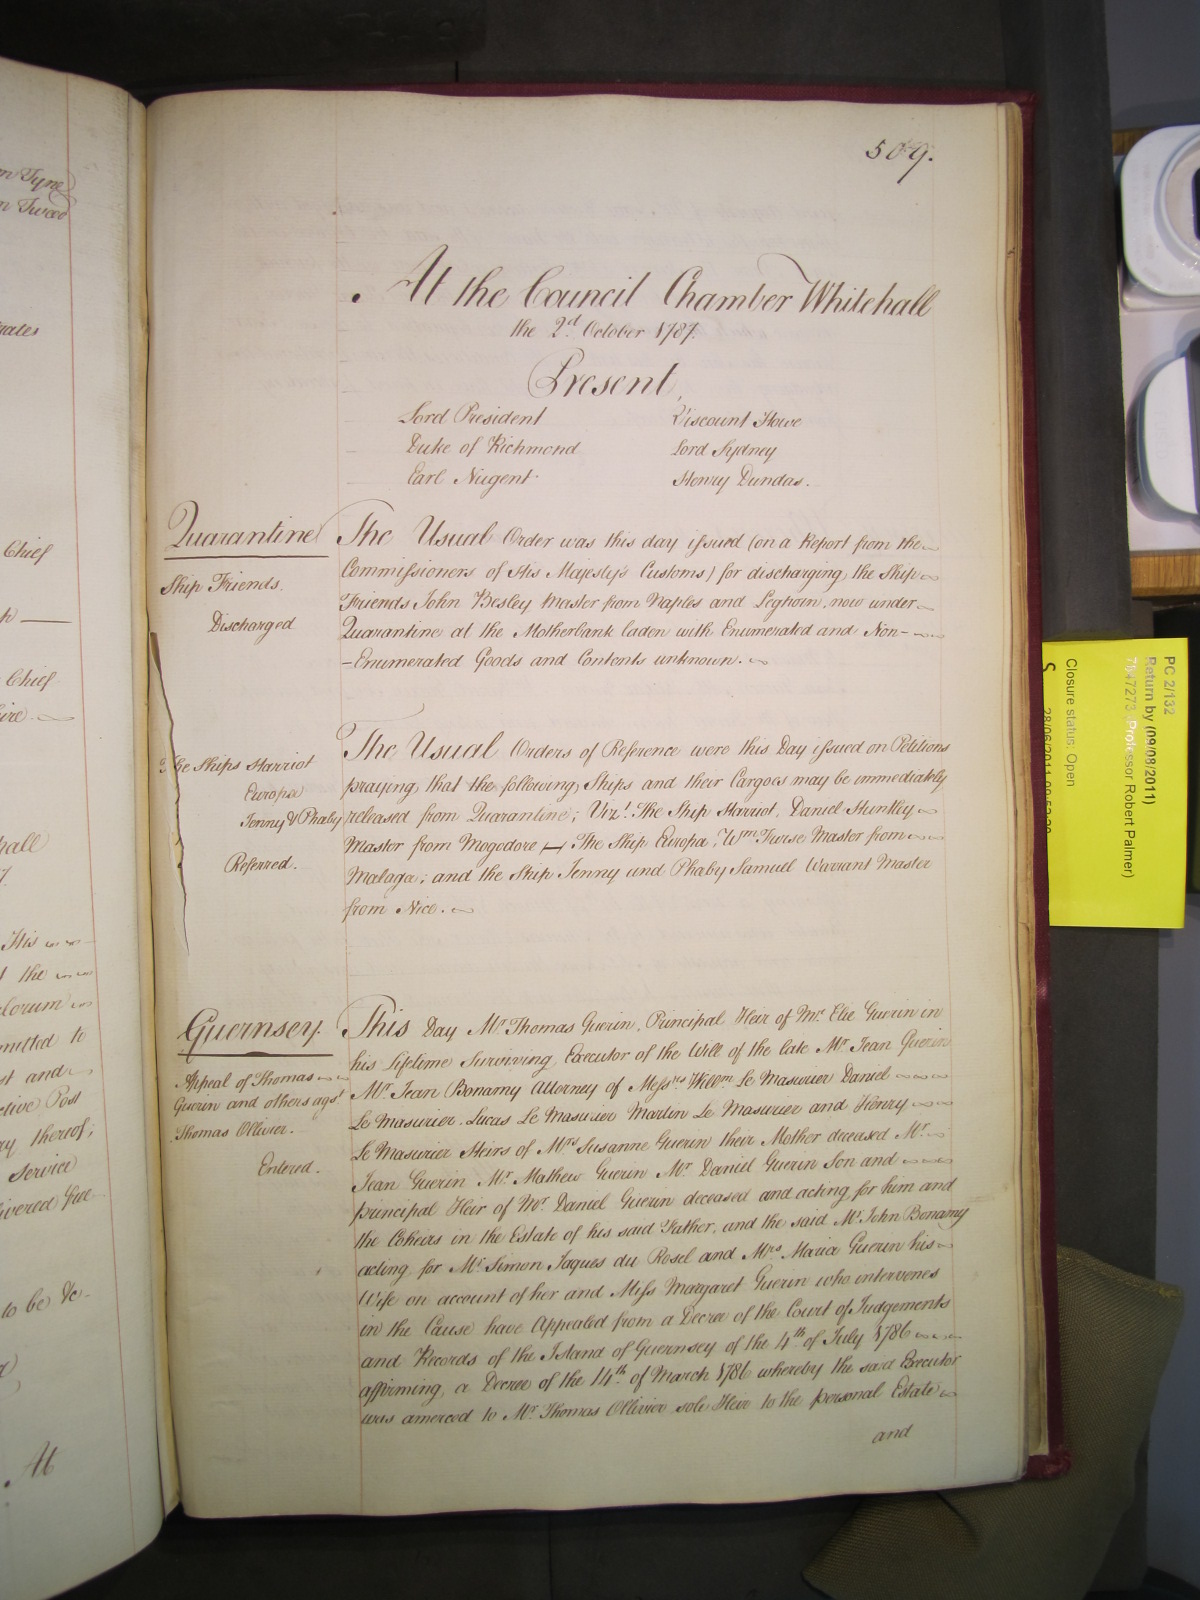 509.
At the Council Chamber Whitehall
the 2d October 1787.
Present,
Lord President
Viscount Howe
Duke of Richmond
Lord Sydney
Earl Nugent
Henry Dundas.
Quarantine
Ship Friends.
Discharged
The Usual Order was this day issued (on a Report from the
Commissioners of His Majesty's Customs) for discharging the Ship
Friends John Besley Master from Naples and Leghorn, now under
Quarantine at the Motherbank laden with Enumerated and Non-
-Enumerated Goods and Contents unknown.
The Ships Harriot
Europa
Jenny & Phaby
Referred.
The Usual Orders of Reference were this Day issued on Petitions
praying that the following Ships and their Cargoes may be immediately
released from Quarantine; Vizt. The Ship Harriot, Daniel Huntley
Master from Mogodore — The Ship Europa, Wm. Furse Master from
Malaga; and the Ship Jenny and Phaby Samuel Warrant Master
from Nice.
Guernsey.
Appeal of Thomas
Guerin and others agst
Thomas Ollivier.
Entered.
This Day Mr. Thomas Guerin, Principal Heir of Mr. Elie Guerin in
his lifetime Surviving Executor of the Will of the late Mr. Jean Guerin
Mr. Jean Bonamy Attorney of Messrs Willm. Le Masurier Daniel
Le Masurier, Lucas Le Masurier Martin Le Masurier and Henry
Le Masurier Heirs of Mrs Susanne Guerin their Mother deceased Mr.
Jean Guerin Mr. Mathew Guerin Mr. Daniel Guerin Son and
principal Heir of Mr. Daniel Guerin deceased and acting for him and
the Coheirs in the Estate of his said Father, and the said Mr. John Bonamy
acting for Mr. Simon Jaques du Rosel and Mrs Maria Guerin his
Wife on account of her and Miss Margaret Guerin who intervenes
in the Cause have Appealed from a Decree of the Court of Judgements
and Records of the Island of Guernsey of the 4th of July 1786
affirming a Decree of the 14th. of March 1786 whereby the said Executor
was amerced to Mr. Thomas Ollivier sole Heir to the personal Estate
and
n Tyne
n Tweed
Chief
Chief
His
the
mitted to
st and
ctive Post
y thereof;
Service
to be &c.
At
PC 2/132
Return by (09/08/2011)
7947273 (Professor Robert Palmer)
Closure status: Open
S